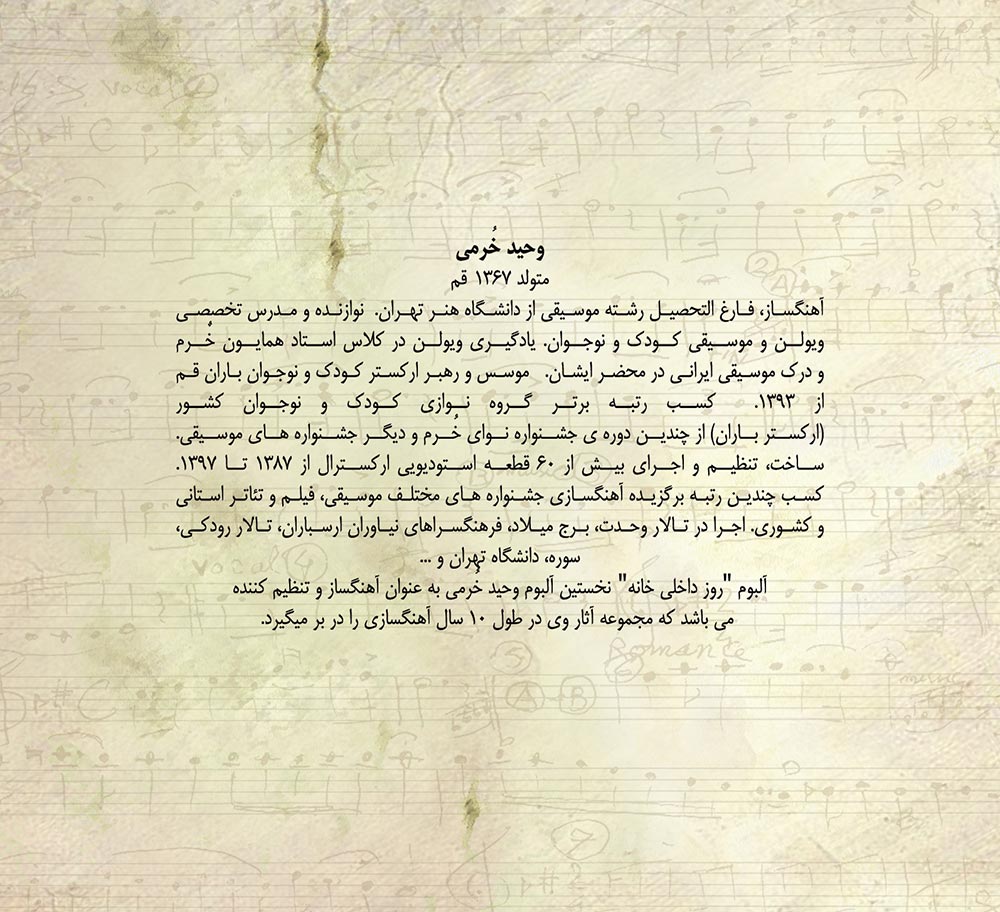 وحید خُرمی
متولد ۱۳۶۷ قم
آهنگساز، فارغ التحصیل رشته موسیقی از دانشگاه هنر تهران. نوازنده و مدرس تخصصی
ویولن و موسیقی کودک و نوجوان. یادگیری ویولن در کلاس استاد همایون خُرم
و درک موسیقی ایرانی در محضر ایشان. موسس و رهبر ارکستر کودک و نوجوان باران قم
از ۱۳۹۳. کسب رتبه برتر گروه نوازی کودک و نوجوان کشور
(ارکستر باران) از چندین دوره ی جشنواره نوای خُرم و دیگر جشنواره های موسیقی.
ساخت، تنظیم و اجرای بیش از ۶۰ قطعه استودیویی ارکسترال از ۱۳۸۷ تا ۱۳۹۷.
کسب چندین رتبه برگزیده آهنگسازی جشنواره های مختلف موسیقی، فیلم و تئاتر استانی
و کشوری. اجرا در تالار وحدت، برج میلاد، فرهنگسراهای نیاوران ارسباران، تالار رودکی،
سوره، دانشگاه تهران و ...
آلبوم "روز داخلی خانه" نخستین آلبوم وحید خُرمی به عنوان آهنگساز و تنظیم کننده
می باشد که مجموعه آثار وی در طول ۱۰ سال آهنگسازی را در بر میگیرد.
vocal
2
A
vocal
Romance
5
6
A + B
7